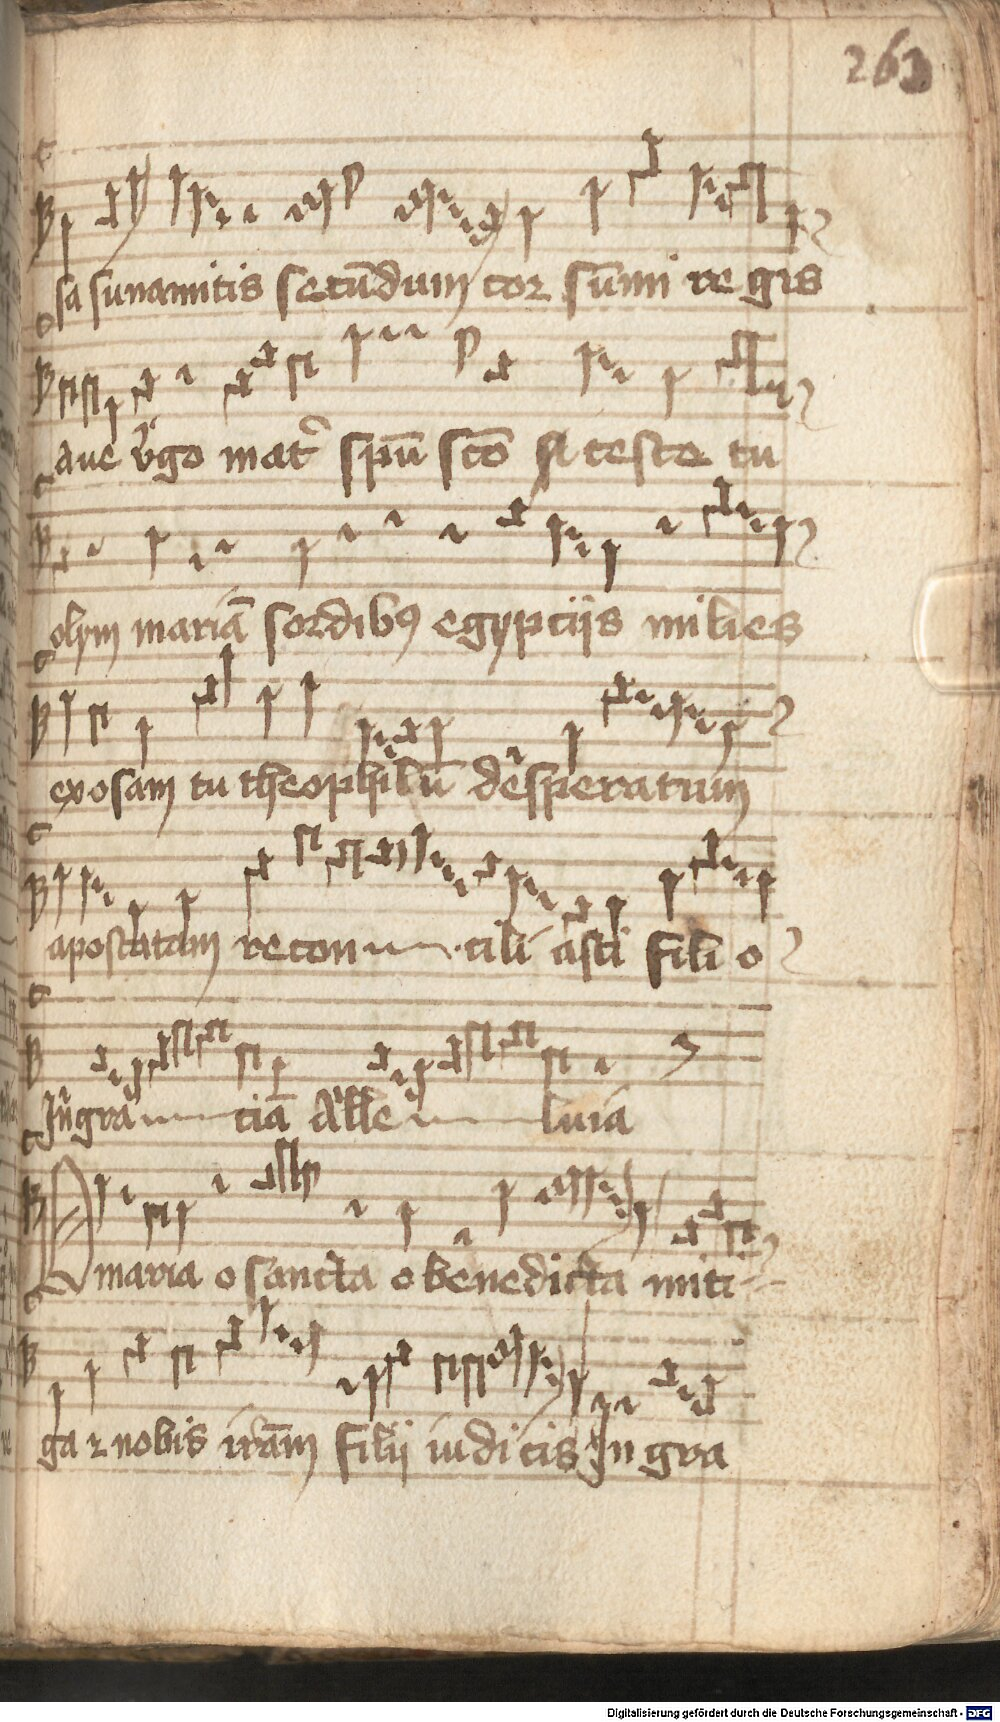 263
sa sunamitis secūdum cor sūmi re gis
aue v̾go mat᷒ spū scō si teste tu
olym mariā sordibꝯ egyptijs milies
exosam tu theophilū desperatum
apostatam recon cili asti filio
In gra ciā Alle luia
O maria o sancta o benedicta miti
ga nobis irām filij iudicis In gra
Digitalisierung gefördert durch die Deutsche Forschungsgemeinschaft - DFG